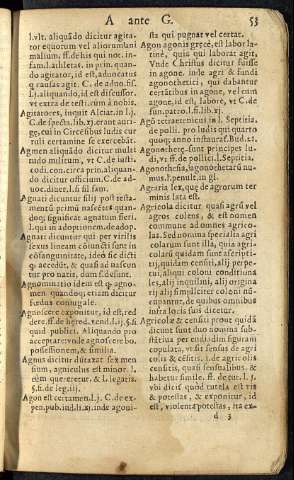 A ante G. 53
l. vlt. aliquãdo dicitur agita-
tor equorum vel aliorum ani
malium. ff. de his qui not. in-
fam. l. athletas. in prin. quan-
do agitator, id est, aduocatus
q causas agit. C. de adno. fis.
l. j. aliquando, id est discussor.
vt extra de testi. cum à nobis.
Agitatores, inquit Alciat. in l. j.
C. de specta. lib. xj. erant auri-
gæ, qui in Circēsibus ludis cur
ruli certamine se exercebāt.
Agmen aliquādo dicitur multi
tudo militum, vt C. de iusti.
codi. con. circa prin. aliquan-
do dicitur officium. C. de ad-
uoc. diuer. l. fi.
Agnati dicuntur filij post testa-
mentū
l. qui in adoptionem. de adop.
Agnati dicuntur qui per virilis
sexus lineam cōiuncti sunt in
cōsanguinitate, ideò sic dicti
accedāt, & quasi ad inuicem
pro natis, dum
Agnominatio idem est
men
Agnoscere exponitur, id est, red
dere. ff. de
quid publici. Aliquando pro
acceptare: vnde agnoscere bo.
possessionem, & similia.
Agnus dicitur
sium, agniculus est minor. l.
item quæretur, & l. legaris.
de leg. iij.
Agon est certamen. l. j. C. de ex-
pen. pub. ind. li. xj. inde agoni-
sta qui pugnat vel certat.
Agon agonis græcè, est labor la-
tinè, quia qui laborat agit,
Vnde Christus dicitur fuisse
in agone. inde agri & fundi
agonethici, qui dabantur
certātibus in agone, vel cum
agone, id est, labore, vt C. de
fun. patro. l. fi. lib. xj.
Agō tetraetericus in l. Septitia,
de polli. pro ludis qui quarto
quoq; anno instaurāt. Bud. 21.
Agonothetę sunt principes lu-
di, vt ff. de pollici. l. Septitia,
Agonothesia, agonothetarū mu-
nus. l. penul. in gl.
Agraria lex, quæ de agrorum ter
minis lata est.
Agricola dicitur, quasi agrū vel
agros colens, & est nomen
commune ad omnes agrico-
las. Sed nomina specialia agri
colarum sunt illa, quia agri-
colarū quidam sunt ascripti-
tij, quidam censiti, alij perpe-
tui, aliqui coloni conditiona
les, alij inquilini, alij origina
rij alij simpliciter coloni nū-
cupantur, de quibus omnibus
infra locis suis dicetur.
Agricolæ & censiti prout quidā
dicunt sunt duo nomina sub-
stātiua per endiadim figuram
copulata, vt sit sensus de agri
colis & cēsitis. i. de agricolis
censitis, quasi sensualibus. &
habetur simile. ff. de cur. l. j.
vbi dicit quòd tutela est vis
& potestas, & exponitur, id
est, violenta potestas, ita ex-
d 3